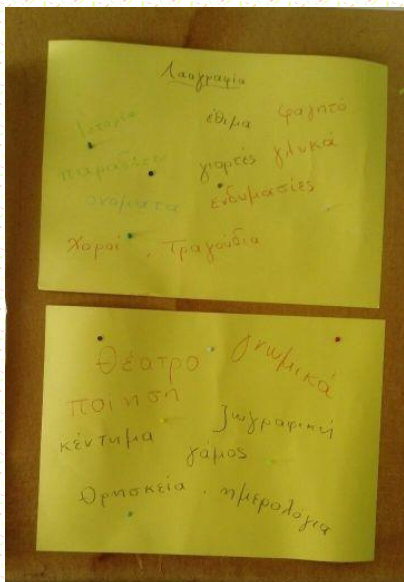 Λαογραφία
έθιμα φαγητό
παραδόσεις γιορτές γλυκά
ονόματα ενδυμασίες
Χοροί , Τραγούδια
Θέατρο γνωμικά
ποίηση
κέντημα ζωγραφική
γάμος
Θρησκεία , ημερολόγια